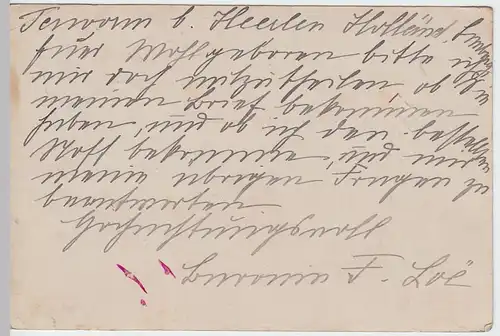 Terworm b. Heerlen Holland, Limburg
Euer Wohlgeboren bitte ich
mir doch mitzutheilen ob Sie
meinen Brief bekommen
haben, und ob ich den bestellten
Stoff bekomme, und mir
meine übrigen Fragen zu
beantworten
Hochachtungsvoll
Baronin F. Loë